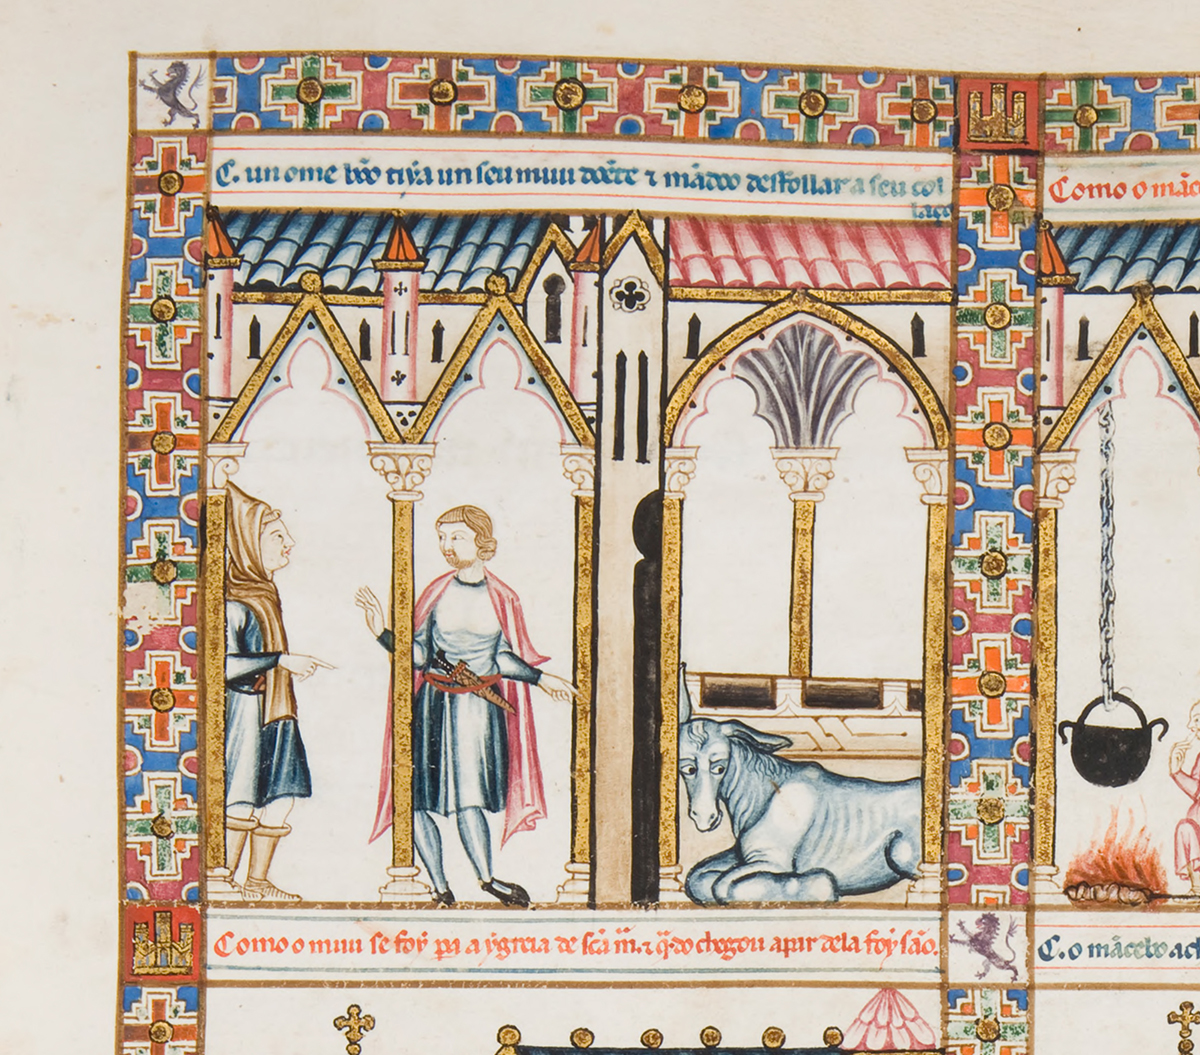 C. un ome bõo tiỹa un seu muu doẽte ⁊ mãdoo desfollar a seu col
laço
Como o mãc
Como o muu se foỹ pa a ỹgreia de scã m̃. ⁊ q̃do chegou a par dela foỹ são.
C. o mãcebo. ach